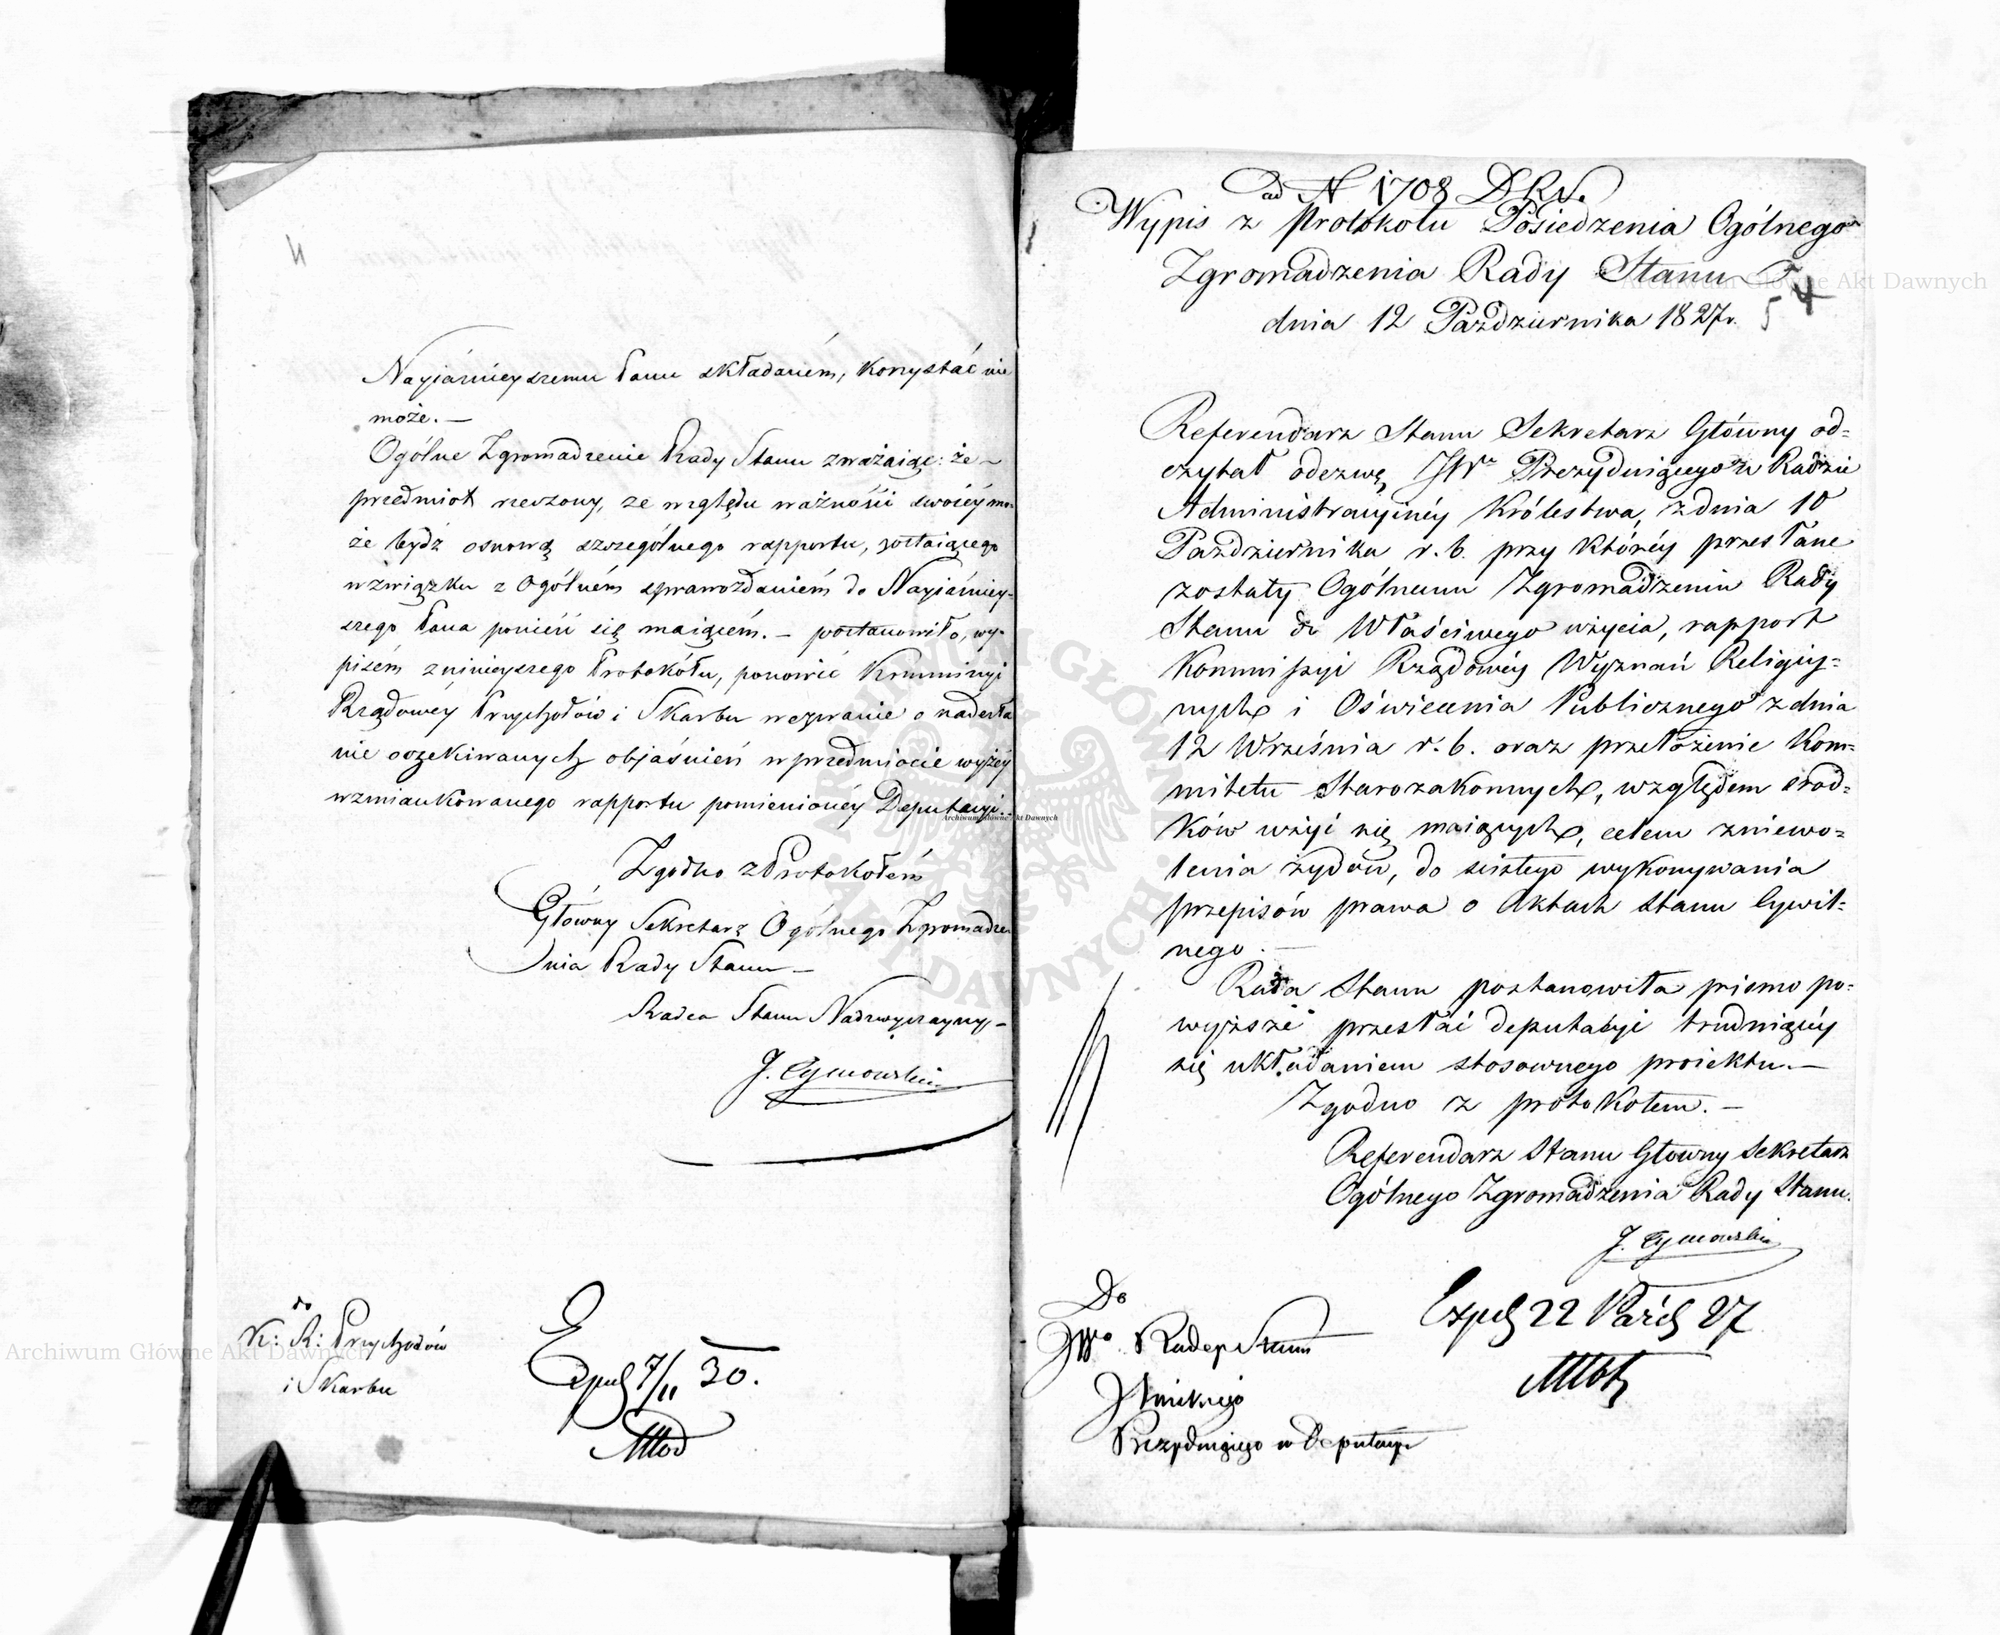 Nayiaśnieyszemu Panu składaniem, korzystać nie
może. —
Ogólne Zgromadzenie Rady Stanu zważaiąc: że —
przedmiot rzeczony, ze względu ważności swoiéy mo-
że bydź osnową szczególnego rapportu, zostaiącego
w związku z Ogólném sprawozdaniém do Nayiaśniey-
szego Pana ponieść się maiącém. — postanowiło, wy-
pisém z ninieyszego Protokółu, ponowić Kommissyi
Rządowéy Przychodów i Skarbu wezwanie o nadesła
nie oczekiwanych objaśnień w przedmiocie wyżéy
wzmiankowanego rapportu pomienionéy Deputacyi.
Zgodno z Protokołém
Główny Sekretarz Ogólnego Zgromadze-
nia Rady Stanu —
Radca Stanu Nadzwyczayny, —
J. Tymowski
do
K: R: Przychodów
i Skarbu
Exped 7/11 30.
ad N 1708 D.R.S.
Wypis z Protokołu Posiedzenia Ogólnego
Zgromadzenia Rady Stanu
dnia 12 Października 1827r.
5 4
Referendarz Stanu Sekretarz Główny od=
czytał odezwę JWo Prezyduiącego w Radzie
Administracyinéy Królestwa, z dnia 10
Października r. b. przy któréy przesłane
zostały Ogólnemu Zgromadzeniu Rady
Stanu do Właściwego użycia, rapport
Kommissyi Rządowéy Wyznań Religiy=
nych i Oświecenia Publicznego z dnia
12 Września r. b. oraz przełożenie Kom=
mitetu Starozakonnych, względem środ=
ków użyć się maiących, celem zniewo=
lenia żydów, do ścisłego wykonywania
przepisów prawa o Aktach Stanu Cywil=
nego. —
Rada Stanu postanowiła pismo po=
wyższe przesłać deputacyi trudniącéy
się układaniem stosownego proiektu. —
Zgodno z protokołem. —
Referendarz Stanu Głowny Sekretarz
Ogólnego Zgromadzenia Rady Stanu.
J. Tymowski
Do
JWo Radcy Stanu
Prezyduiącego w Deputacyi
Exped 22 Paźd 27
Archiwum Główne Akt Dawnych
Archiwum Główne Akt Dawnych
Archiwum Główne Akt Dawnych
ARCHIWUM GŁÓWNE AKT DAWNYCH